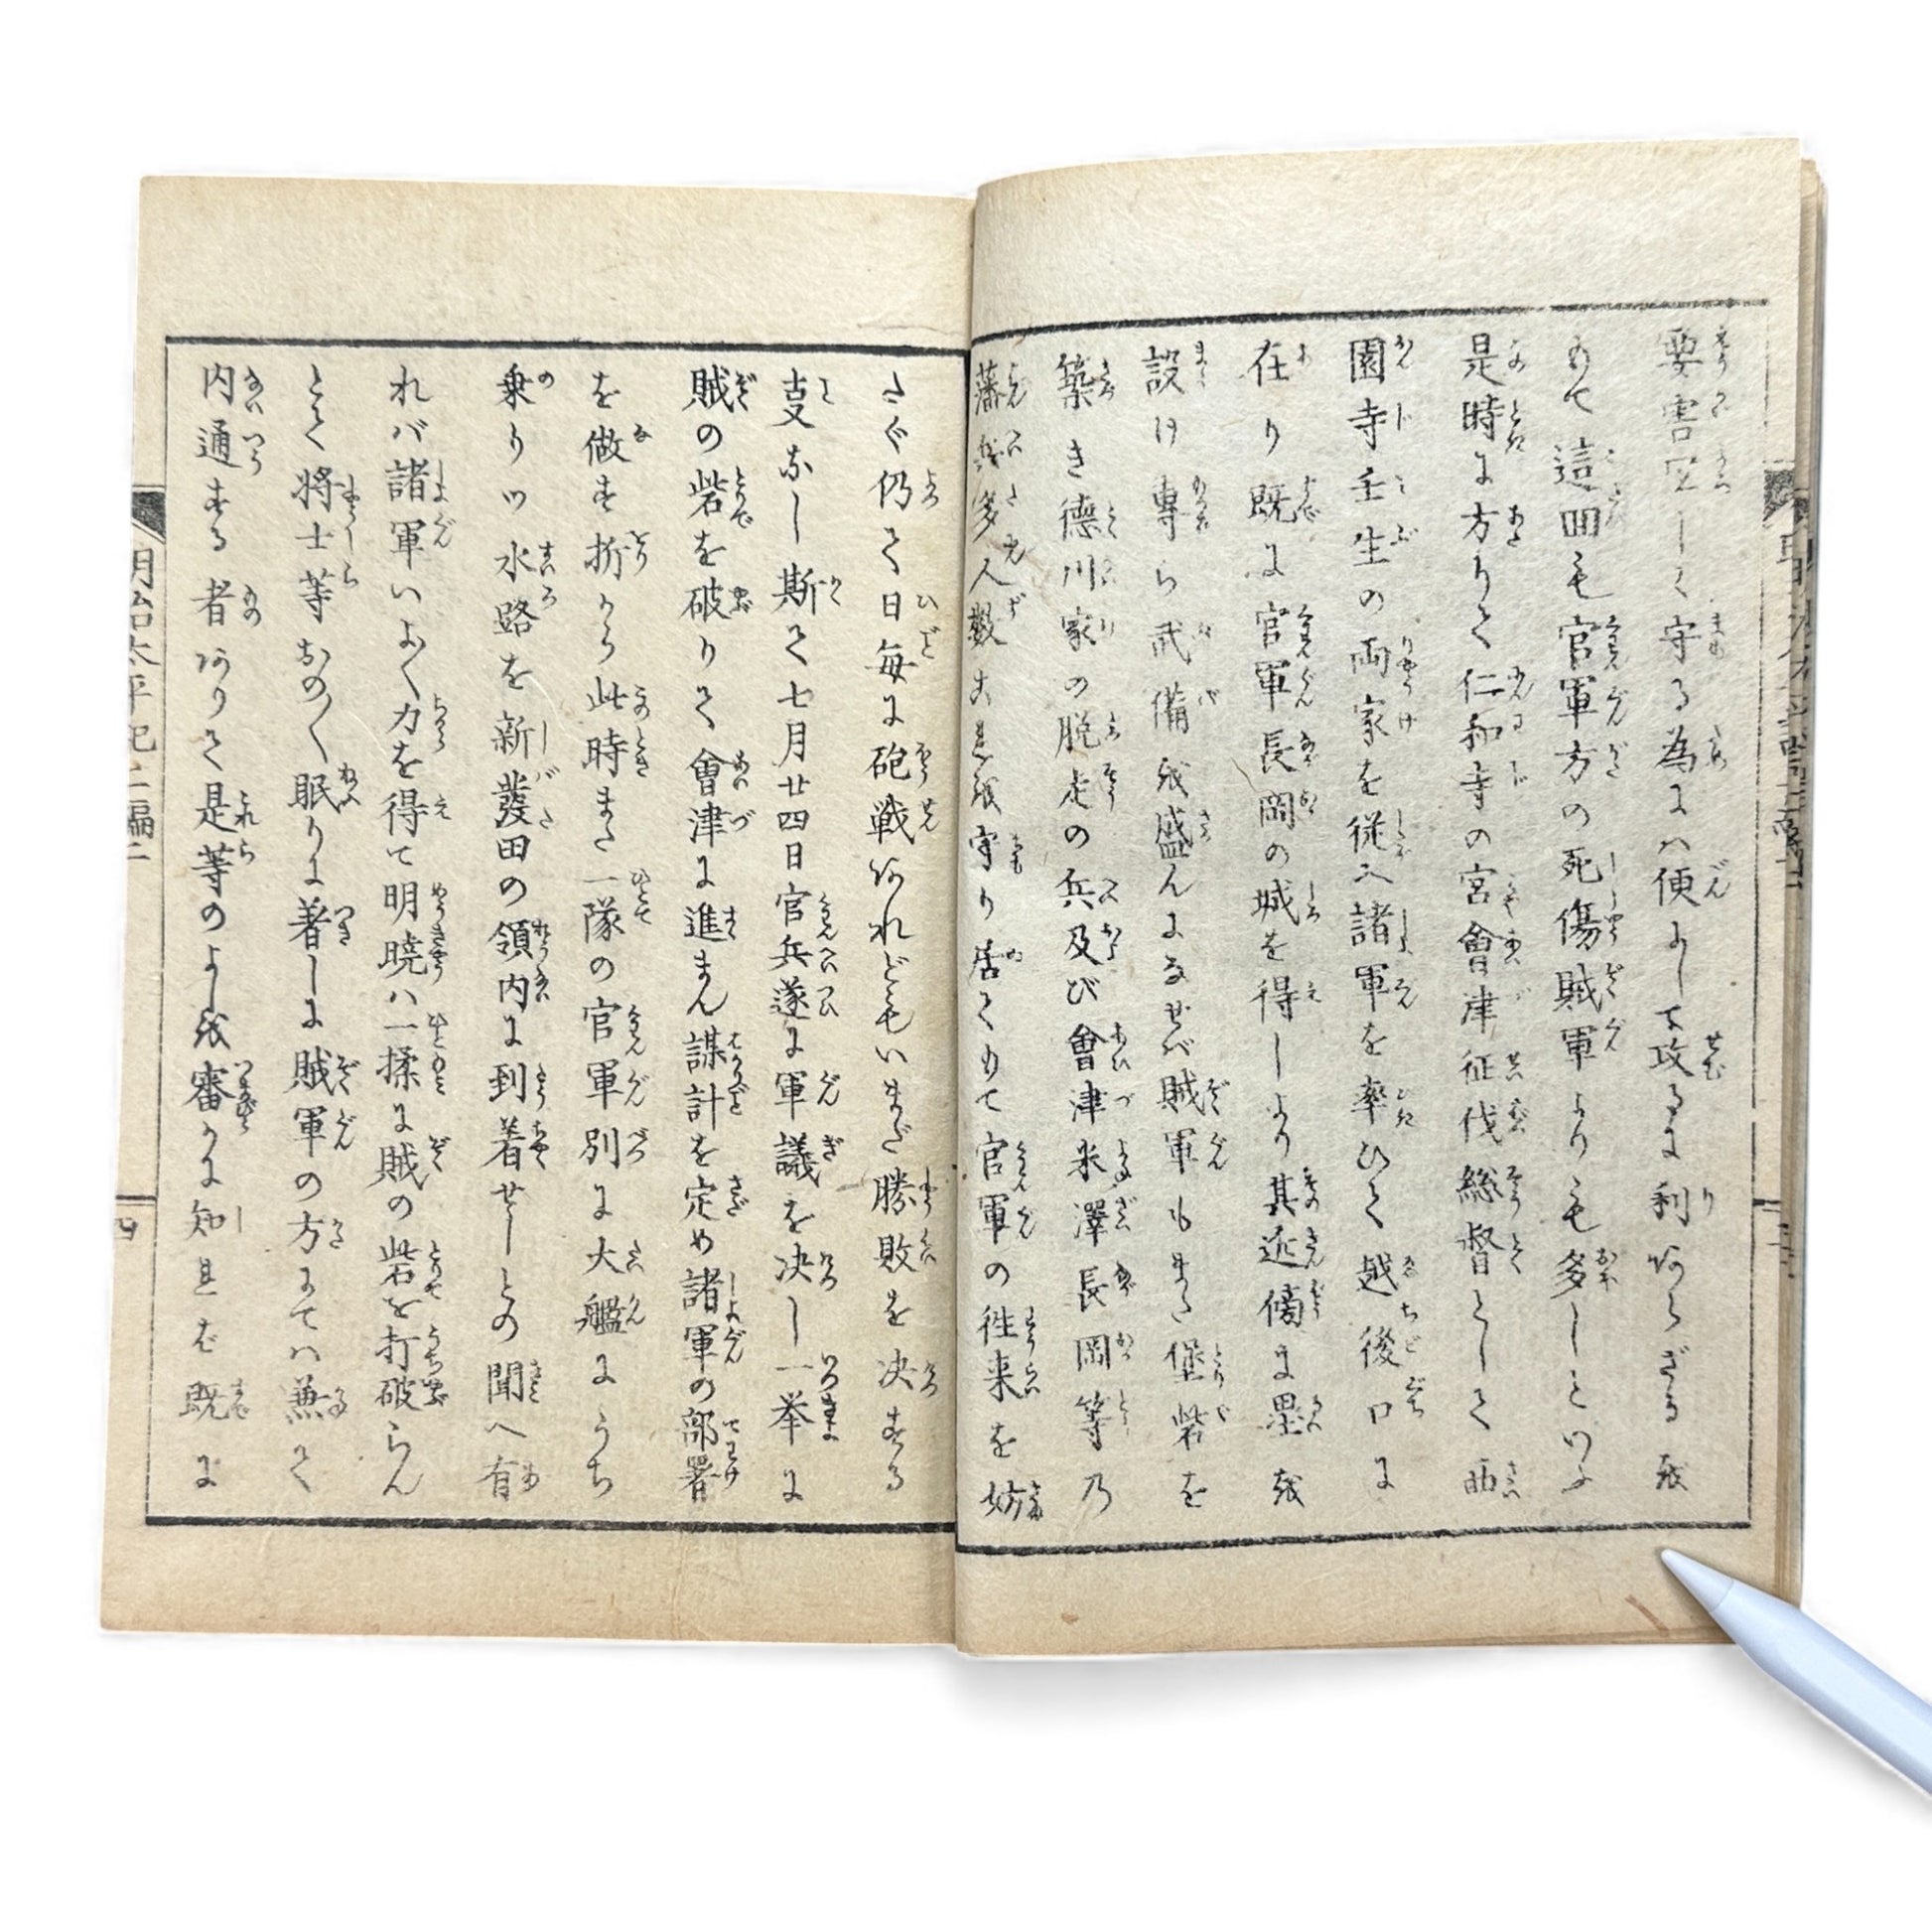 要害宜しく守る為には便よしと攻るに利あらざるを
もて這回も官軍方の死傷賊軍よりも多しといふ
是時に方りて仁和寺の宮會津征伐総督として西
園寺壬生の両家を従へ諸軍を率ひて越後口に
在り既に官軍長岡の城を得しより其近傍に塁を
設け専ら武備を盛んになせば賊軍もまた堡砦を
築き徳川家の脱走の兵及び會津米澤長岡等乃
藩兵多人數これを守り居てもて官軍の徃来を妨
たぐ仍て日毎に砲戦あれどもいまだ勝敗を决する
叓なし斯て七月廿四日官兵遂に軍議を决し一挙に
賊の砦を破りて會津に進まん謀計を定め諸軍の部署
を做す折から此時また一隊の官軍別に大艦にうち
乗りツ水路を新發田の領内に到着せしとの聞へ有
れバ諸軍いよ〱力を得て明曉ハ一揉に賊の砦を打破らん
とて将士等おの〱眠りに着しに賊軍の方にてハ兼て
内通する者ありて是等のよしを審かに知れば既に
明治太平記二編二
四